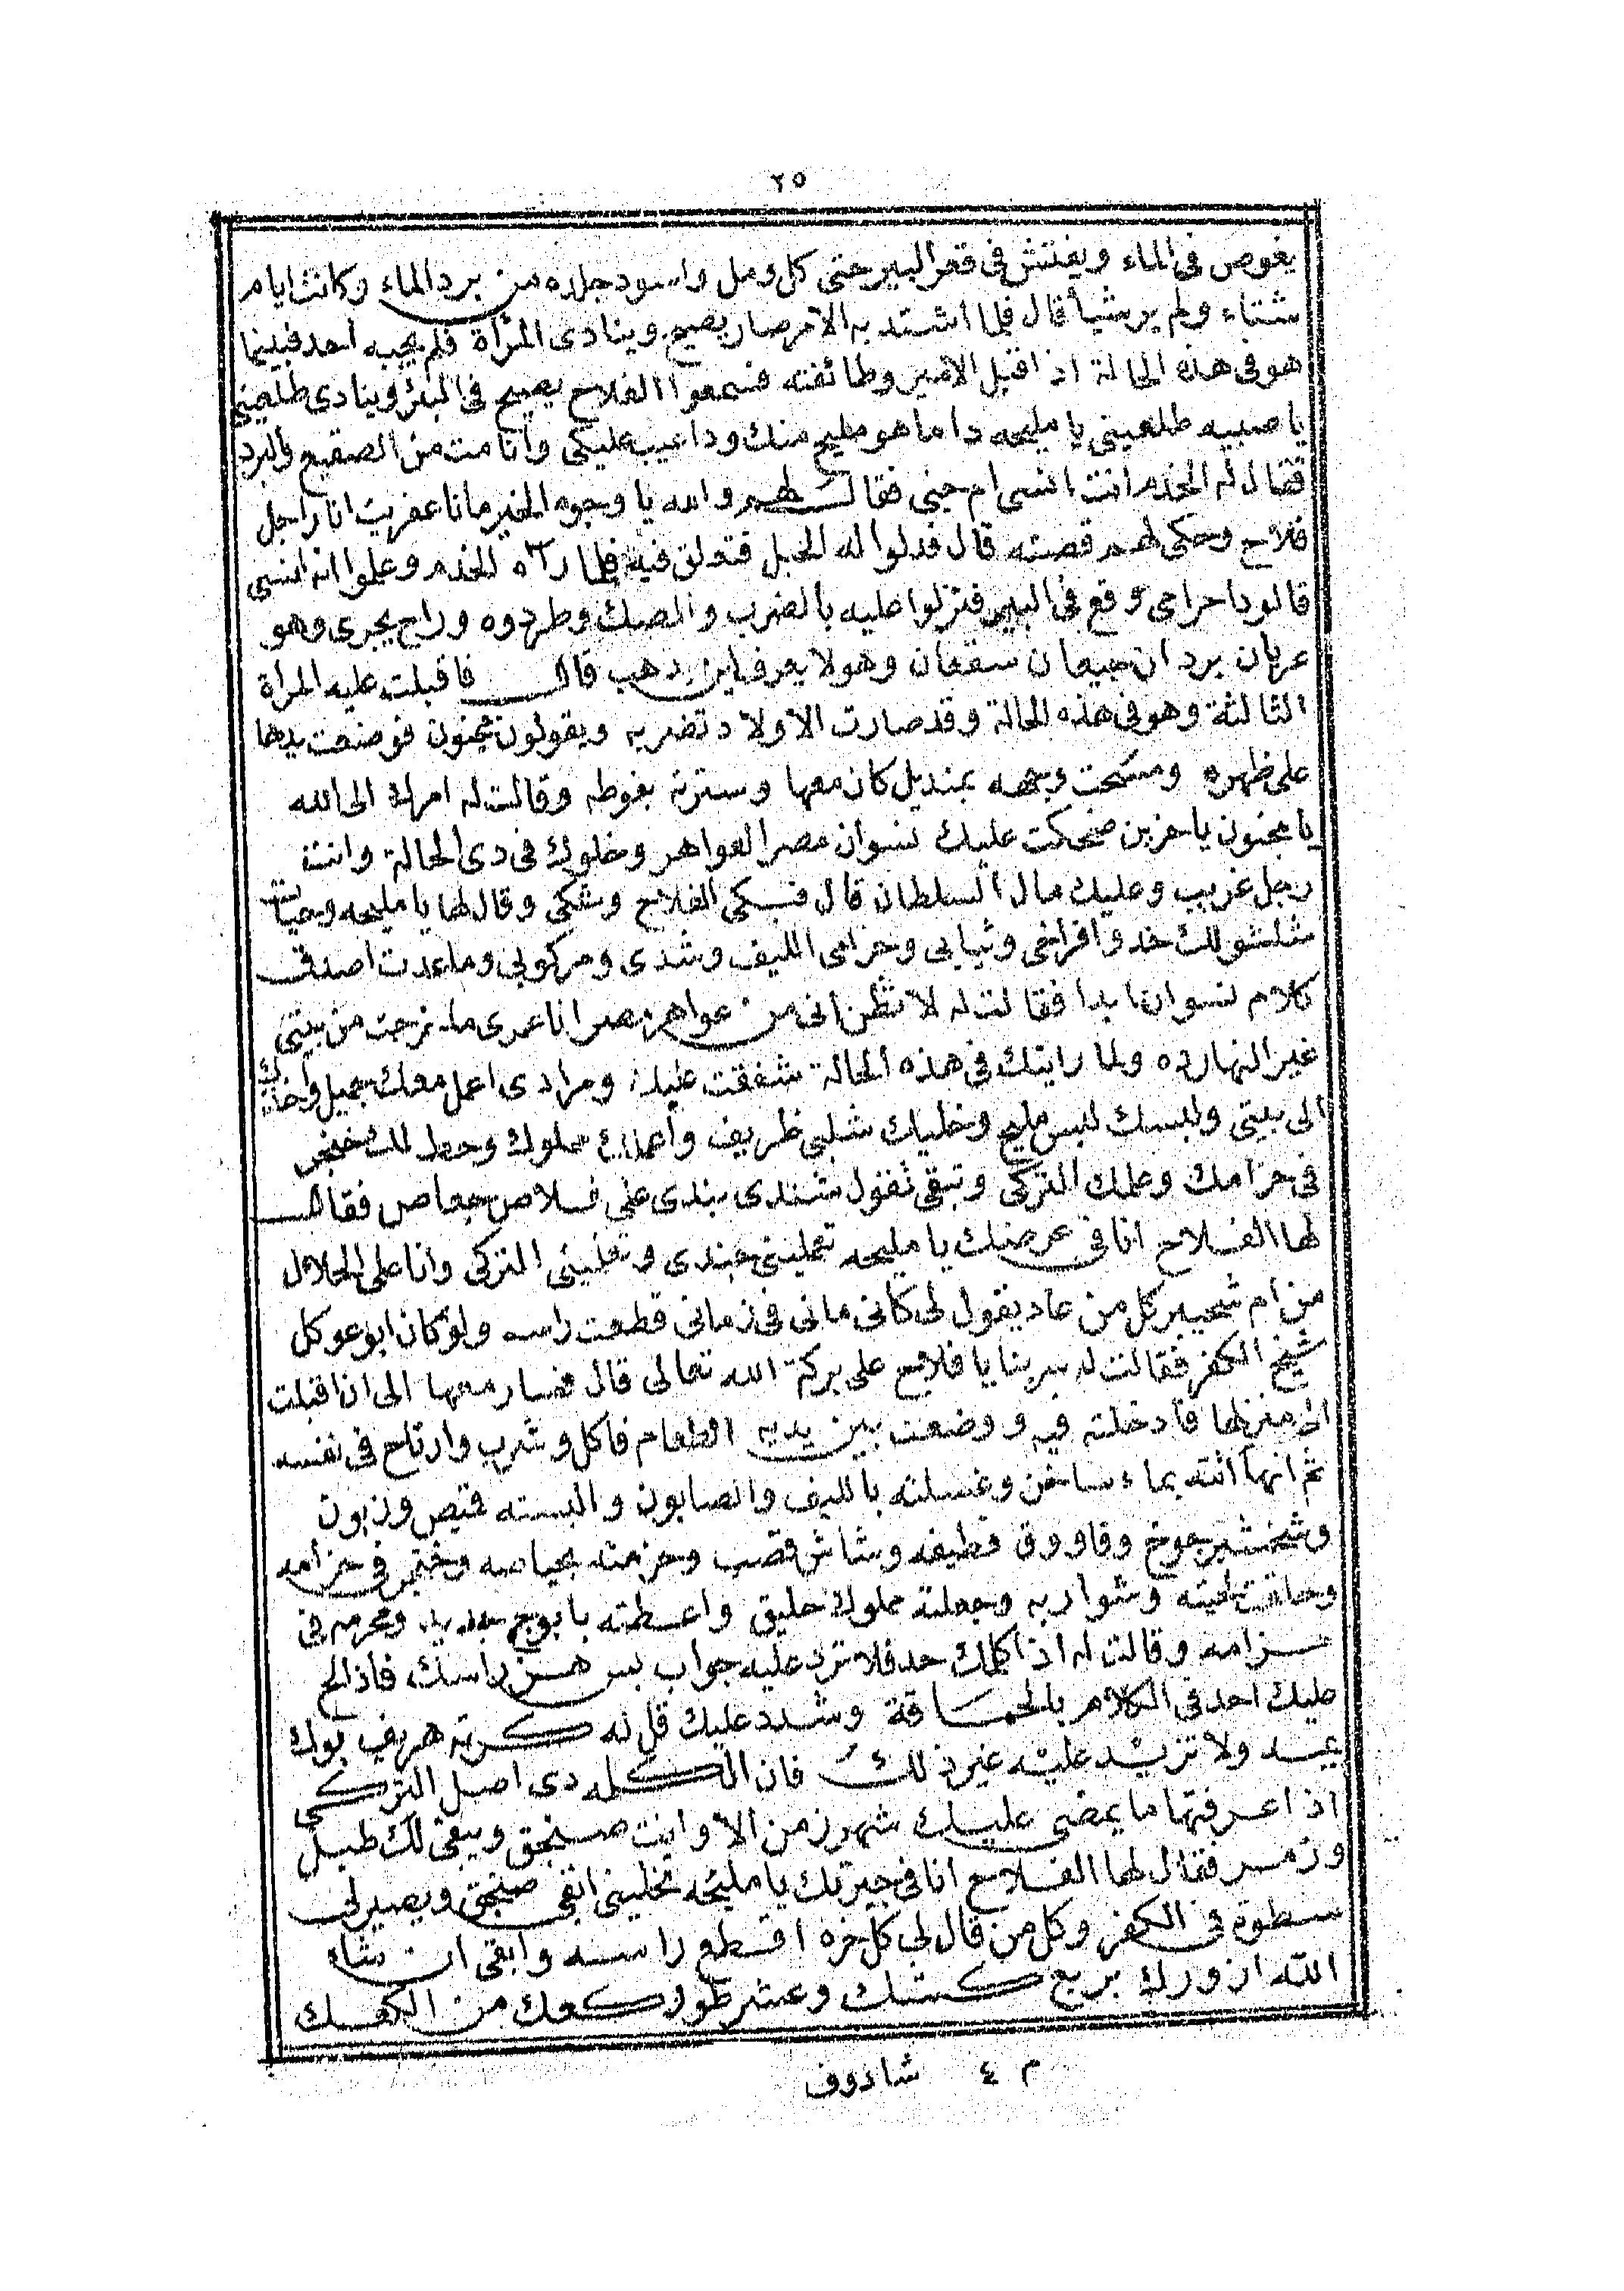 ٢٥
يغوص في الماء ويفتش في قعر البير حتى كل ومل واسود جلده من برد الماء وكانت ايام
شتاء ولم ير شيأ قال فلما اشتد به الامر صار يصيح وينادى المرأة فلم يجبه احد فبينما
هو في هذه الحالة اذ اقبل الامير وطائفته فسمعوا الفلاح يصيح في البئر وينادى طلعيني
يا صبيه طلعيني يا مليحه دا ما هو مليح منك ودا عيب عليكي وانا مت من الصقيع والبرد
فقال له الخدم انت انسى ام جنى فقال لهم والله يا وجوه الخير مانا عفريت انا راجل
فلاح وحكى لهم قصته قال فدلوا له الحبل فتعلق فيه فلما رآه الخدم وعلموا انه انسى
قالو دا حرامى وقع في البير فنزلوا عليه بالضرب والصك وطردوه وراح يجرى وهو
عريان بردان جيعان سقعان وهو لا يعرف اين يذهب قال فاقبلت عليه المرأة
الثالثة وهو في هذه الحالة وقد صارت الاولاد تضربه ويقولون مجنون فوضعت يدها
على ظهره ومسحت وجهه بمنديل كان معها وسترته بفوطه وقالت له امرك الى الله
يا مجنون يا حزين ضحكت عليك نسوان مصر العواهر وخلوك في دى الحالة وانت
رجل غريب وعليك مال السلطان قال فبكى الفلاح وشكى وقال لها يا مليحه وحيات
شلشولك خدوا فراخى وثيابى وحزامى الليف وشدى ومركوبى وما عدت اصدق
كلام نسوان ابدا فقالت له لا تظن انى من عواهر مصر انا عمرى ما خرجت من بيتى
غير النهارده ولما رايتك في هذه الحالة شفقت عليك ومرادى اعمل معك جميل واخدك
الى بيتى ولبسك لبس مليح وخليك شلبى ظريف واعملك مملوك وحط لك خنجر
في حزامك وعلمك التركى وتبقى تقول شندى بندى على فلاص جعاص فقال
لها الفلاح انا في عرضك يا مليحه تعمليني جندى وتعلمينى التركى وانا على الحلال
من ام شحيبر كل من عاد يقول لى كانى مانى في زمانى قطعت راسه ولو كان ابو عوكل
شيخ الكفر فقالت له سر بنا يا فلاح على بركة الله تعالى قال فسار معها الى ان اقبلت
الى منزلها فادخلته فيه ووضعت بين يديه الطعام فاكل وشرب وارتاح في نفسه
ثم انها اتته بماء ساخن وغسلته بالليف والصابون والبسته قميص وزبون
وشخشير جوخ وقاووق قطيفه وشاش قصب وحزمته بحياصه وخنجر في حزامه
وحلقت لحيته وشواربه وجعلته مملوك حليق واعطته بابوج جديد ومحرمه في
حزامه وقالت له اذا كلمك حد فلا ترد عليه جواب بس هز براسك فاذا الح
عليك احد في الكلام بالحماقة وشدد عليك قل له كرته هريف بوك
يمه ولا تزيد عليه غير ذلك فان الكلمه دى اصل التركى
اذا عرفتها ما يمضى عليك شهر زمن الا وانت صنجق ويبقى لك طبل
وزمر فقال لها الفلاح انا في جيرتك يا مليحه تخليني ابقى صنجق ويصير لى
سطوة في الكفر وكل من قال لى كل خره اقطع راسه وابقى ان شاء
الله ازورك بربع كشك وعشر طور كعك من الكعك
م ٤ شادوف